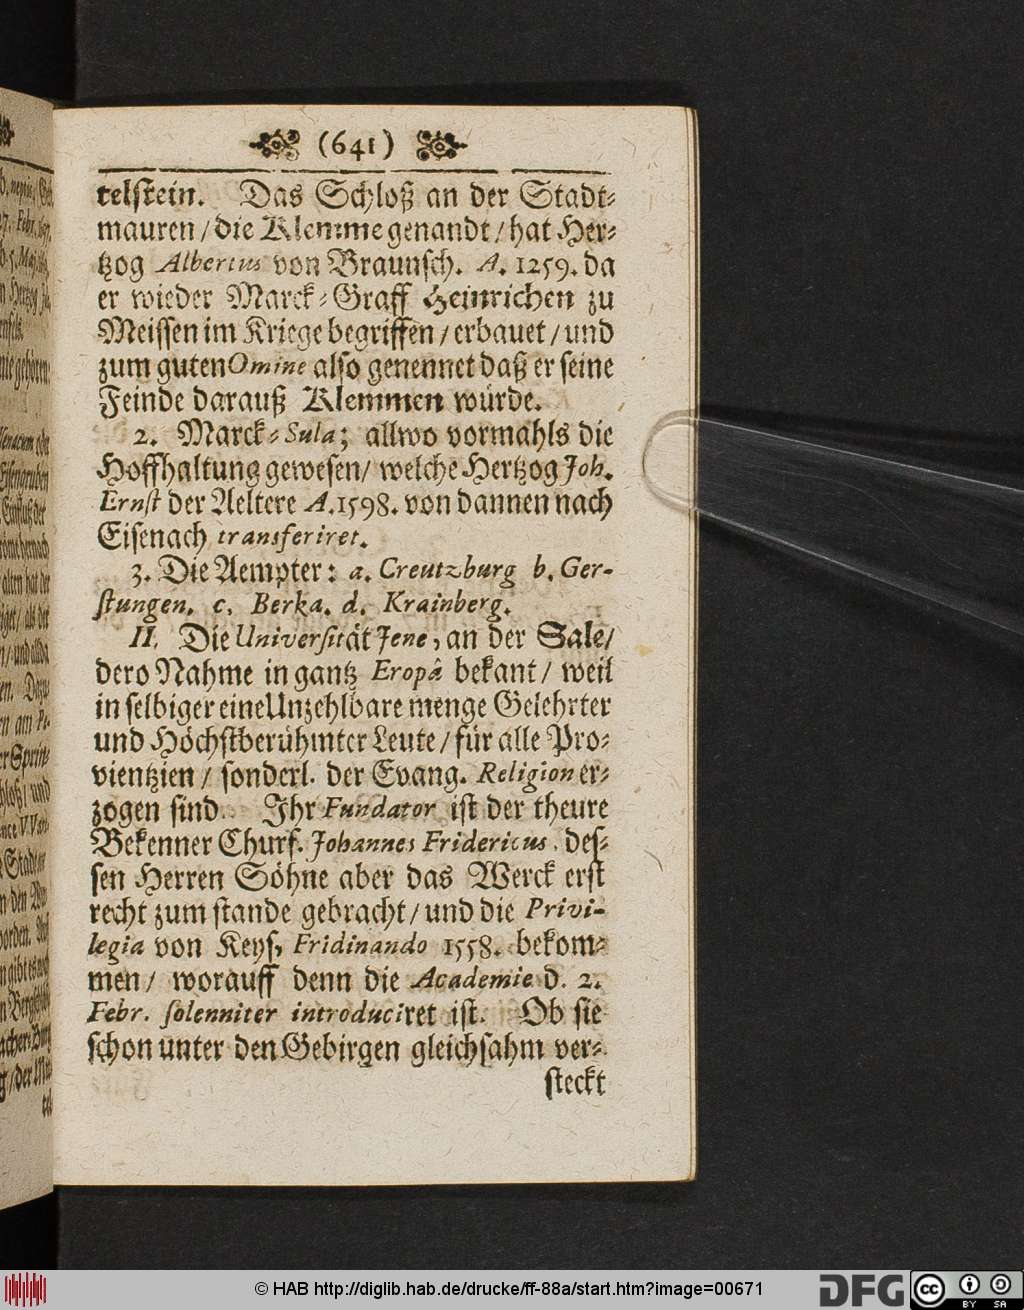 (641)
telstein. Das Schloß an der Stadt-
mauren / die Klemme genandt / hat Her-
tzog Albertus von Braunsch. A. 1259. da
er wieder Marck-Graff Heinrichen zu
Meissen im Kriege begriffen / erbauet / und
zum guten Omine also genennet daß er seine
Feinde darauß Klemmen würde.
2. Marck-Sula; allwo vormahls die
Hoffhaltung gewesen / welche Hertzog Joh.
Ernst der Aeltere A. 1598. von dannen nach
Eisenach transferiret.
3. Die Aempter: a. Creutzburg b. Ger-
stungen. c. Berka. d. Krainberg.
II. Die Universität Jene, an der Sale /
dero Nahme in gantz Eropâ bekant / weil
in selbiger eine Unzehlbare menge Gelehrter
und Höchstberühmter Leute / für alle Pro-
vientzien / sonderl. der Evang. Religion er-
zogen sind. Ihr Fundator ist der theure
Bekenner Churf. Johannes Fridericus. des-
sen Herren Söhne aber das Werck erst
recht zum stande gebracht / und die Privi-
legia von Keys, Fridinando 1558. bekom-
men / worauff denn die Academie d. 2.
Febr. solenniter introduciret ist. Ob sie
schon unter den Gebirgen gleichsahm ver-
steckt
© HAB http://diglib.hab.de/drucke/ff-88a/start.htm?image=00671
DFG
cc BY SA